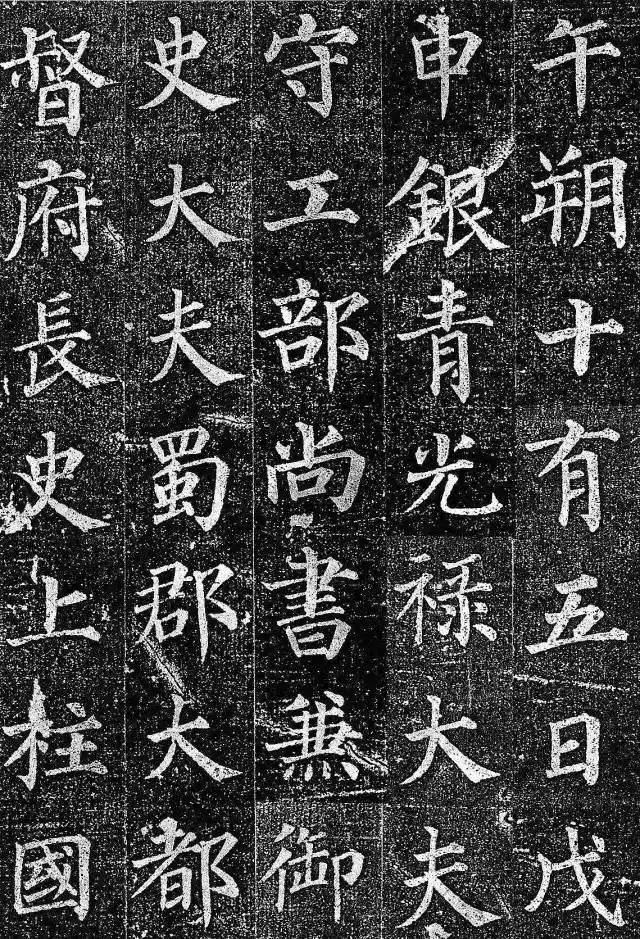 午朔十有五日戊
申銀青光祿大夫
守工部尚書兼御
史大夫蜀郡大都
督府長史上柱國